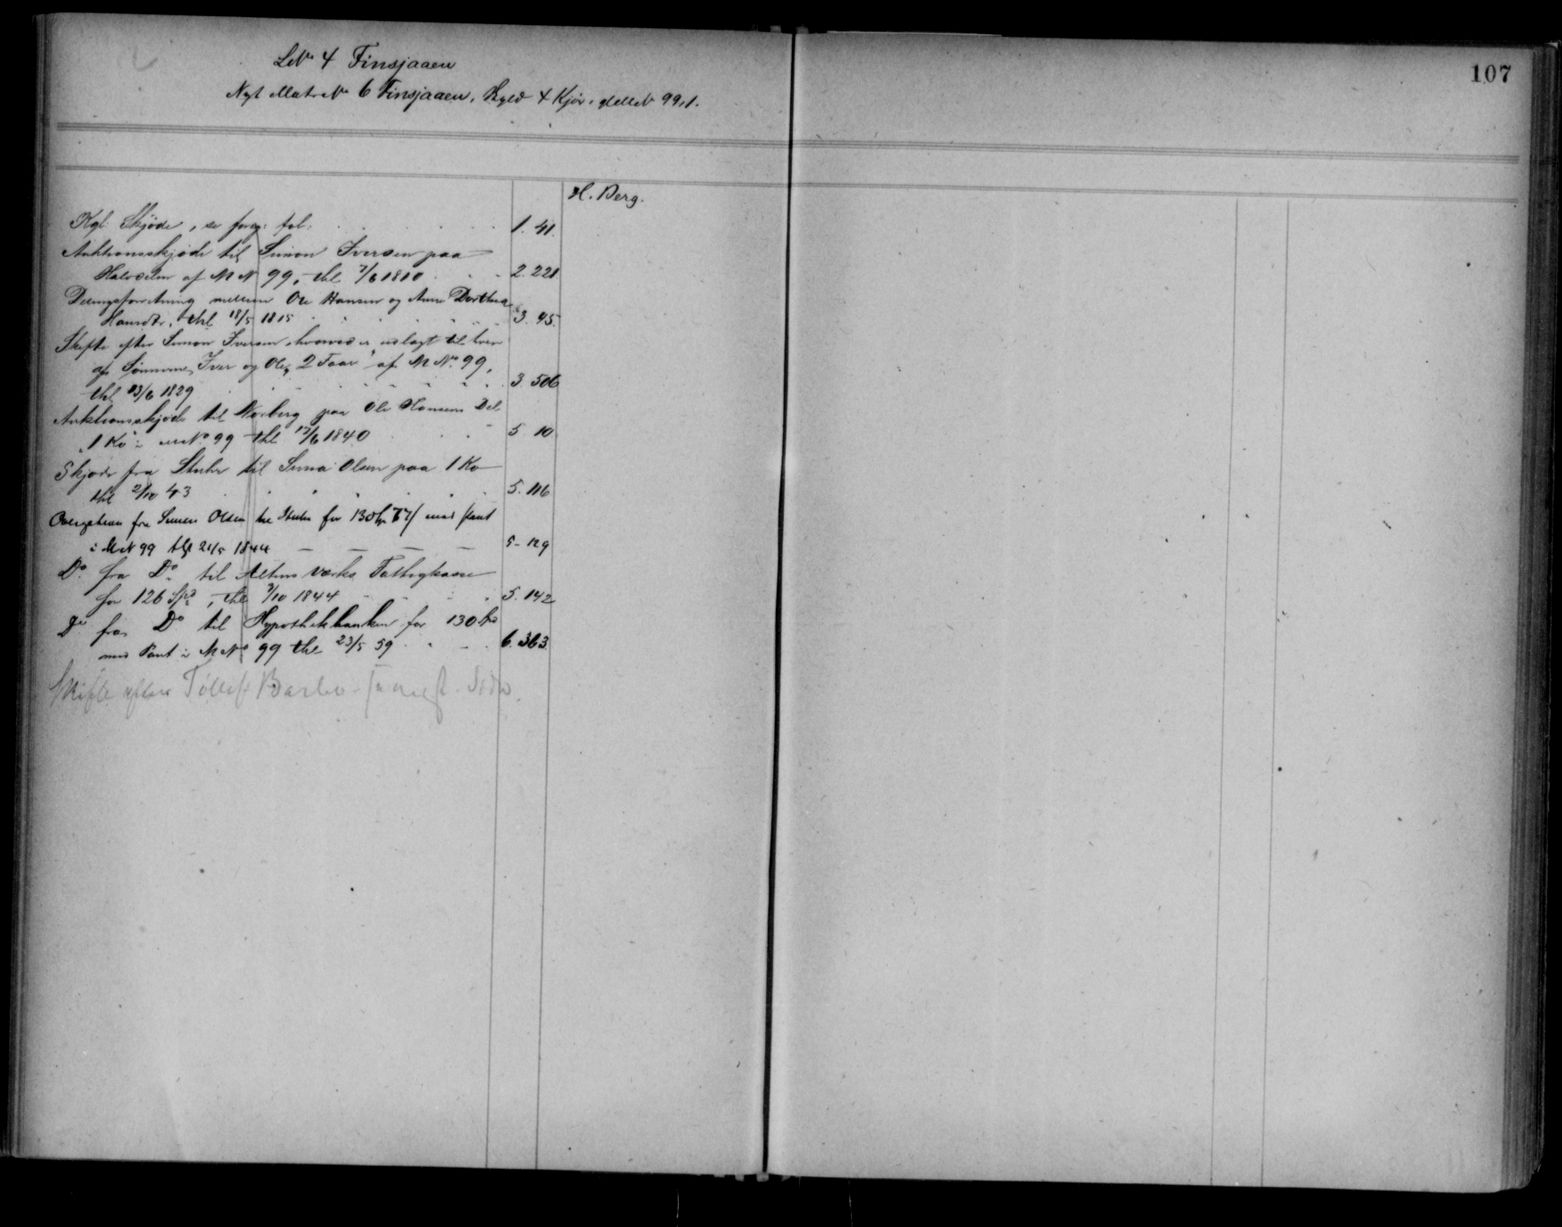 107
LNo 4 Finsjaaen
Nyt Matr No 6 Finsjaaen, Skyld 4 Kjør, glt No 99,1.
H. Berg.
Kgl. Skjøde, se forrg: fol. 1. 41.
Auktionsskjøde til Simon Iversen paa
Halvdelen af M N 99, thl 7/6 1810 2. 221
Delingsforretning mellem Ole Hansen og Anne Dorthea
Hansdr., thl 18/5 1815 3. 45.
Skifte efter Simon Iversen, hvorved er udlagt til hver
af Sønnerne, Iver og Ole, 2 Faar af M No 99,
thl 13/6 1829 3. 506
Auktionsskjøde til Norberg paa Ole Hansens Del
1 Ko i M No 99 thl 17/6 1840 5. 10
Skjøde fra Stuhr til Simon Olsen paa 1 Ko
thl 2/10 43 5. 116
Obligation fra Simon Olsen til Stuhr for 130 Sp 77 / med Pant
i M N 99 thl 21/5 1844 5. 129
Do fra Do til Altens Værks Fattigkasse
for 126 Spd, thl 7/10 1844 5. 142
Do fra Do til Hypothekbanken for 130 Spd
med Pant i M No 99 thl 23/5 59 6. 363
Skifte efter Tollef Barbo